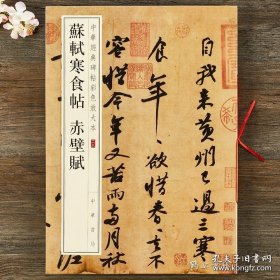 中華經典碑帖彩色放大本
蘇軾寒食帖 赤壁賦
中華書局
自我來黃州已過三寒
食年〻欲惜春〻去不
容惜今年又苦雨兩月
孔夫子旧书网